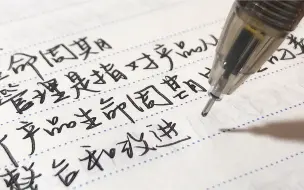 生命周期
管理是指对产品从
个产品生命周期
整合和改进